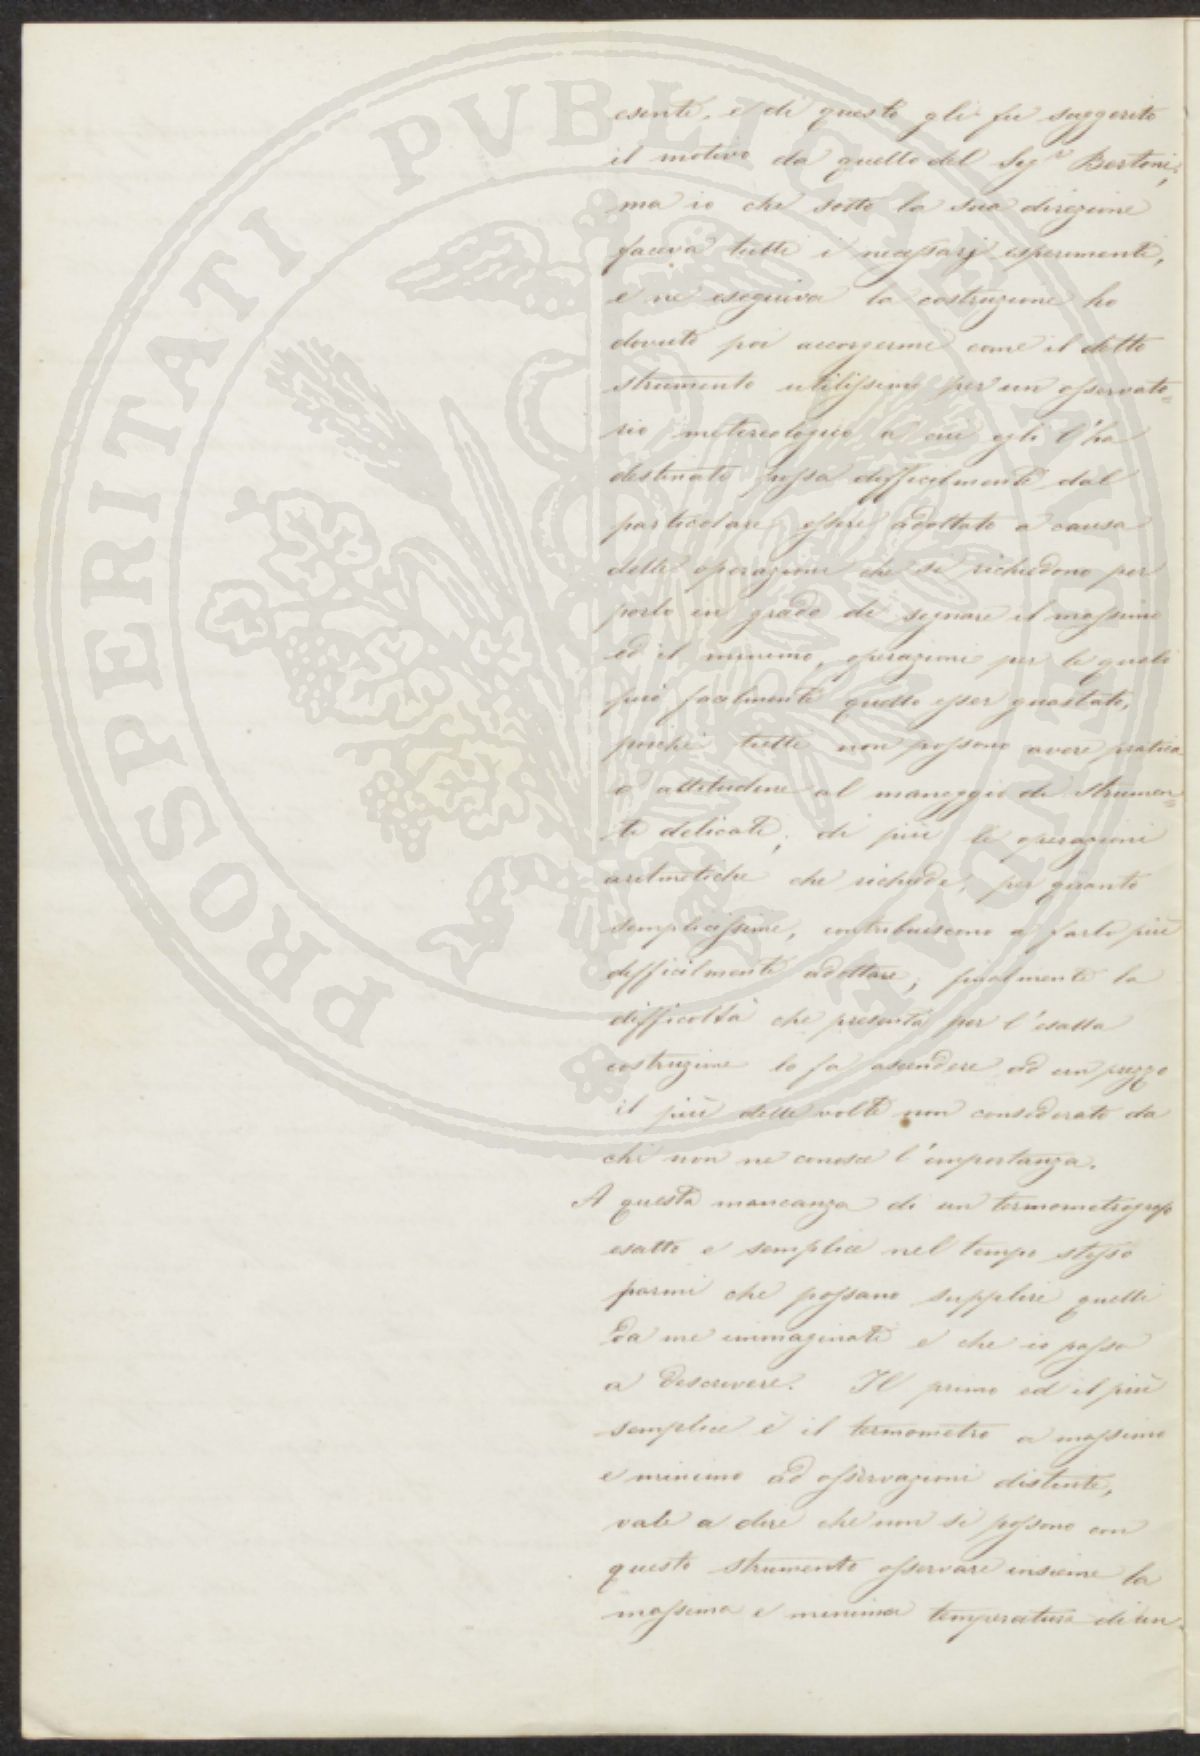 esenti, e di questo gli fu suggerito
il motivo da quello del Sig.r Bertoni;
ma io che sotto la sua direzione
faceva tutti i necessarj esperimenti,
e ne eseguiva la costruzione ho
dovuto poi accorgermi come il detto
strumento utilissimo per un osservato=
rio metereologico a cui egli l'ha
destinato possa difficilmente dal
particolare essere adottato a causa
delle operazioni che si richiedono per
porlo in grado di segnare il massimo
ed il minimo, operazioni per le quali
può facilmente quello esser guastato,
poichè tutti non possono avere pratica
o attitudine al maneggio di strumen=
ti delicati; di più le operazioni
aritmetiche che richiede, per quanto
semplicissime, contribuiscono a farlo più
difficilmente adottare; finalmente la
difficoltà che presenta per l'esatta
costruzione lo fa ascendere ad un prezzo
il più delle volte non considerato da
chi non ne conosce l'importanza.
A questa mancanza di un termometrografo
esatto e semplice nel tempo stesso
parmi che possano supplire quelli
da me immaginati e che io passo
a descrivere. Il primo ed il più
semplice è il termometro a massimo
e minimo ad osservazioni distinte,
vale a dire che non si possono con
questo strumento osservare insieme la
massima e minima temperatura di un
PROSPERITATI PVBLICAE AVGENDAE